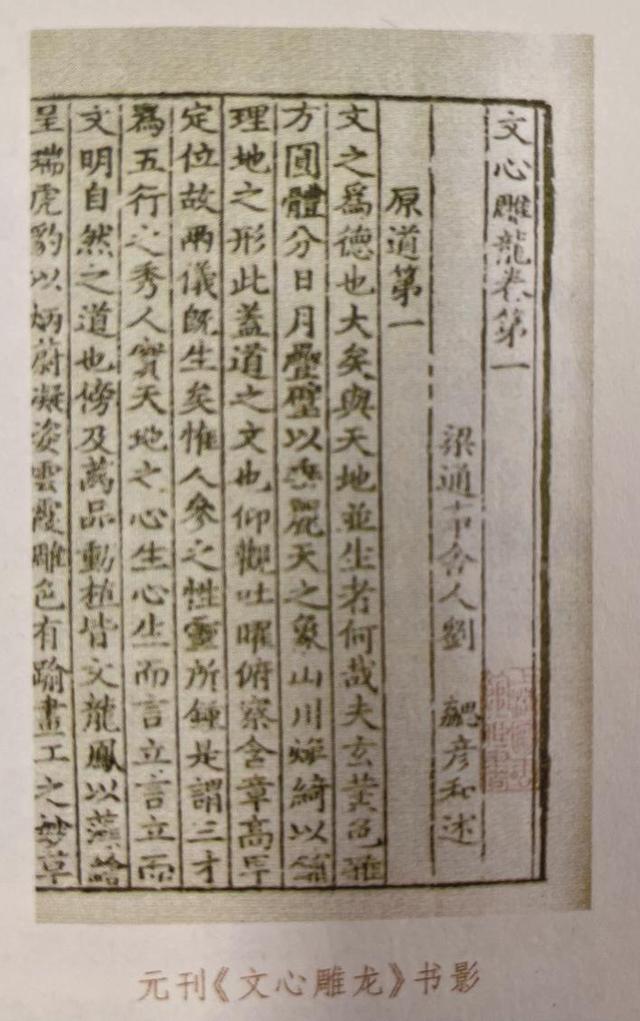 文心雕龍卷第一
梁通事舍人劉 勰彦和述
原道第一
文之爲德也大矣與天地並生者何哉夫玄黃色雜
方圓體分日月疊璧以垂麗天之象山川煥綺以鋪
理地之形此蓋道之文也仰觀吐曜俯察含章高卑
定位故兩儀旣生矣惟人參之性靈所鍾是謂三才
爲五行之秀人實天地之心生心生而言立言立而
文明自然之道也傍及萬品動植皆文龍鳳以藻繪
呈瑞虎豹以炳蔚凝姿雲霞雕色有踰畫工之妙草
元刊《文心雕龙》书影